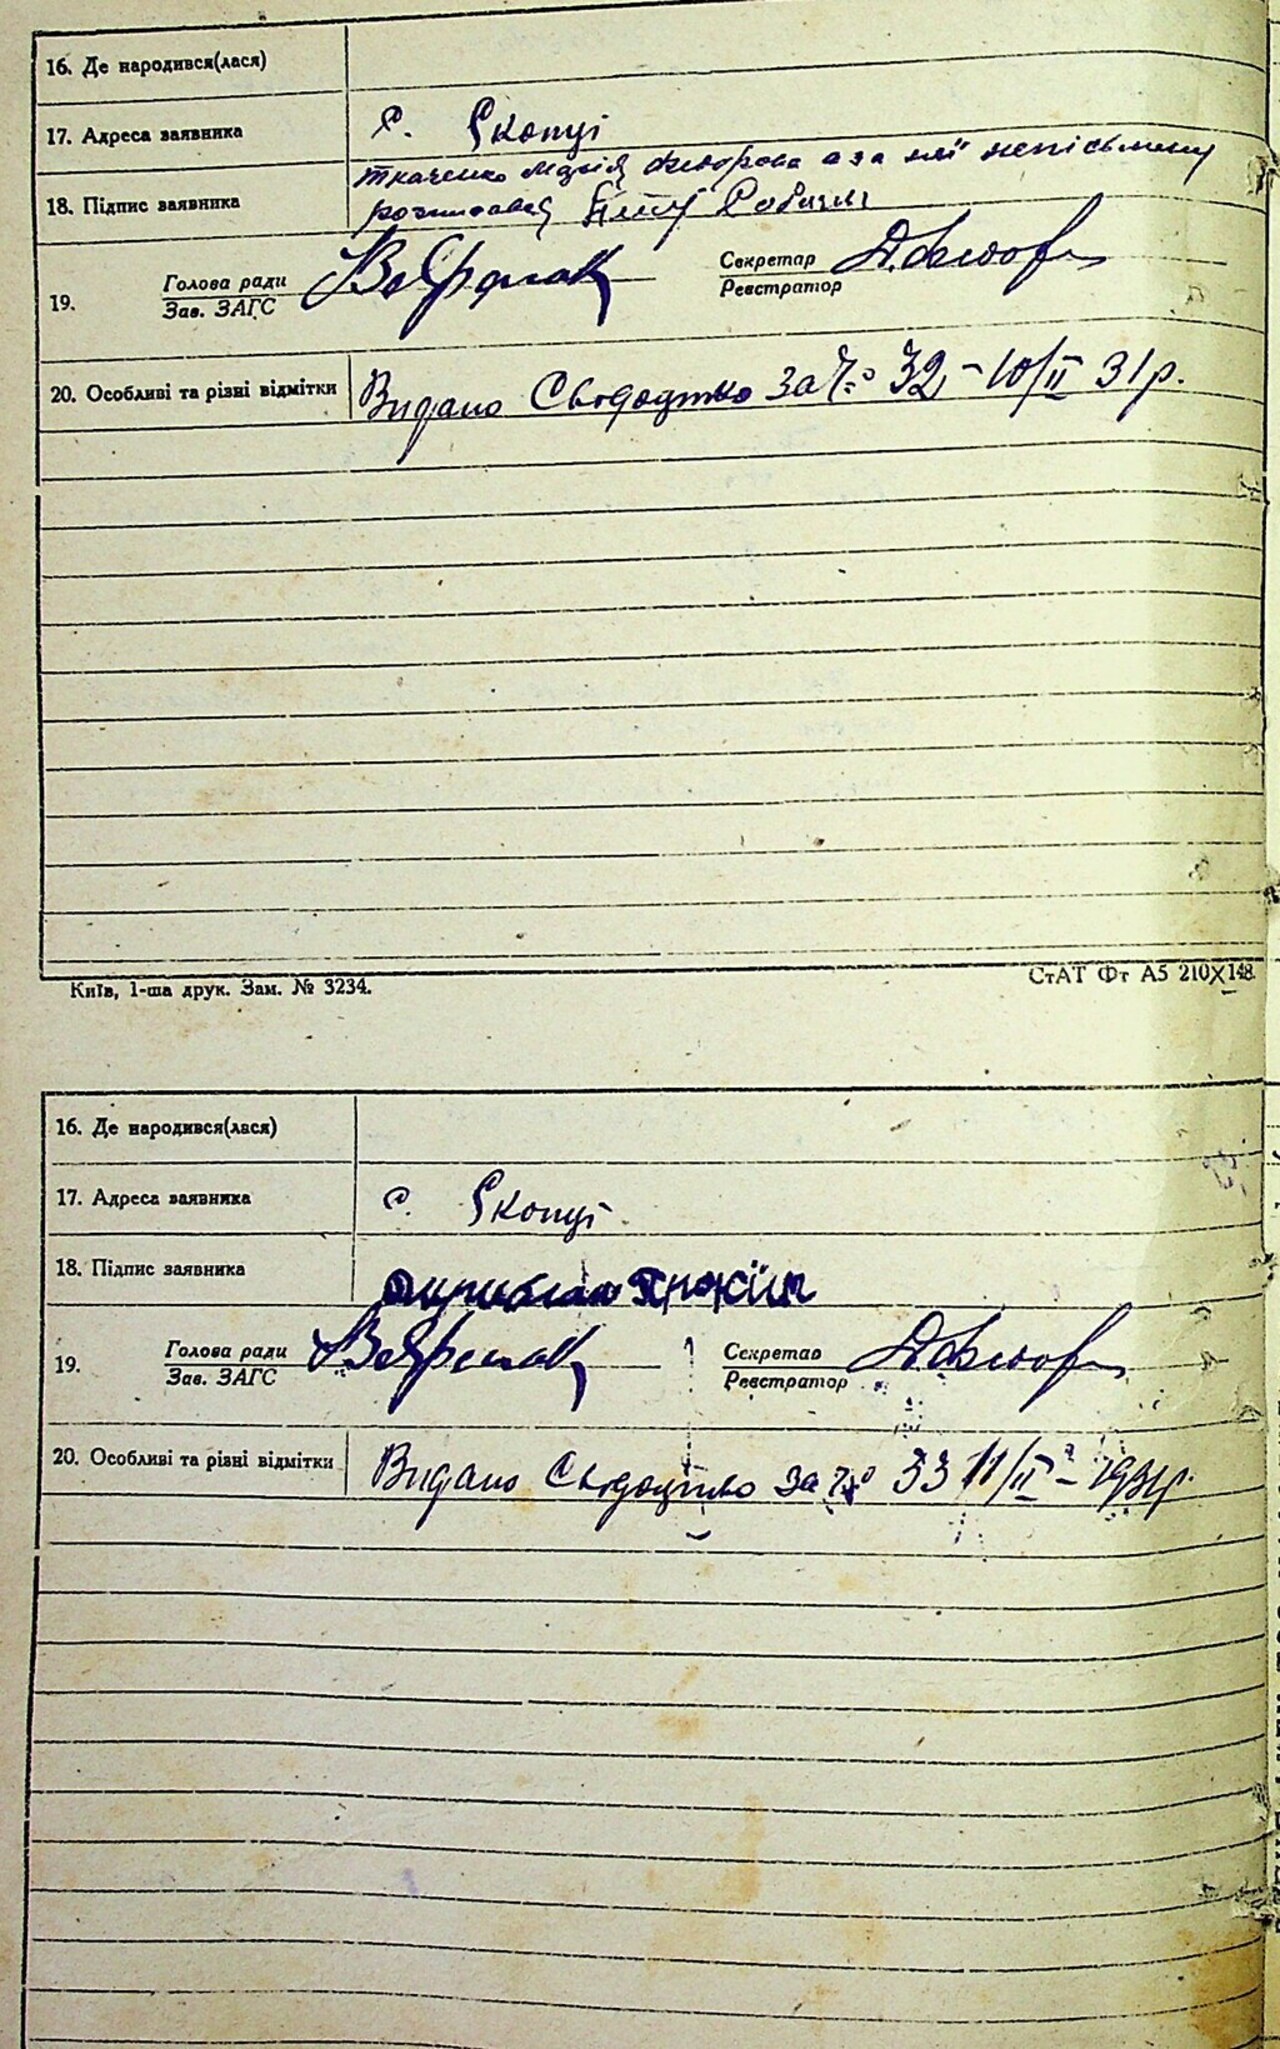 16. Де народився(лася)
17. Адреса заявника с. Скопці
Ткаченко Марія Федорова а за неї неписьмену
18. Підпис заявника розписався
Голова ради Секретар
19. Зав. ЗАГС Реєстратор
20. Особливі та різні відмітки Видано Свідоцтво за № 32 - 10/II 31 р.
Київ, 1-ша друк. Зам. № 3234. СтАТ Фт А5 210X148.
16. Де народився(лася)
17. Адреса заявника с. Скопці
18. Підпис заявника
Голова ради Секретар
19. Зав. ЗАГС Реєстратор
20. Особливі та різні відмітки Видано Свідоцтво за № 33 11/II - 1931 р.